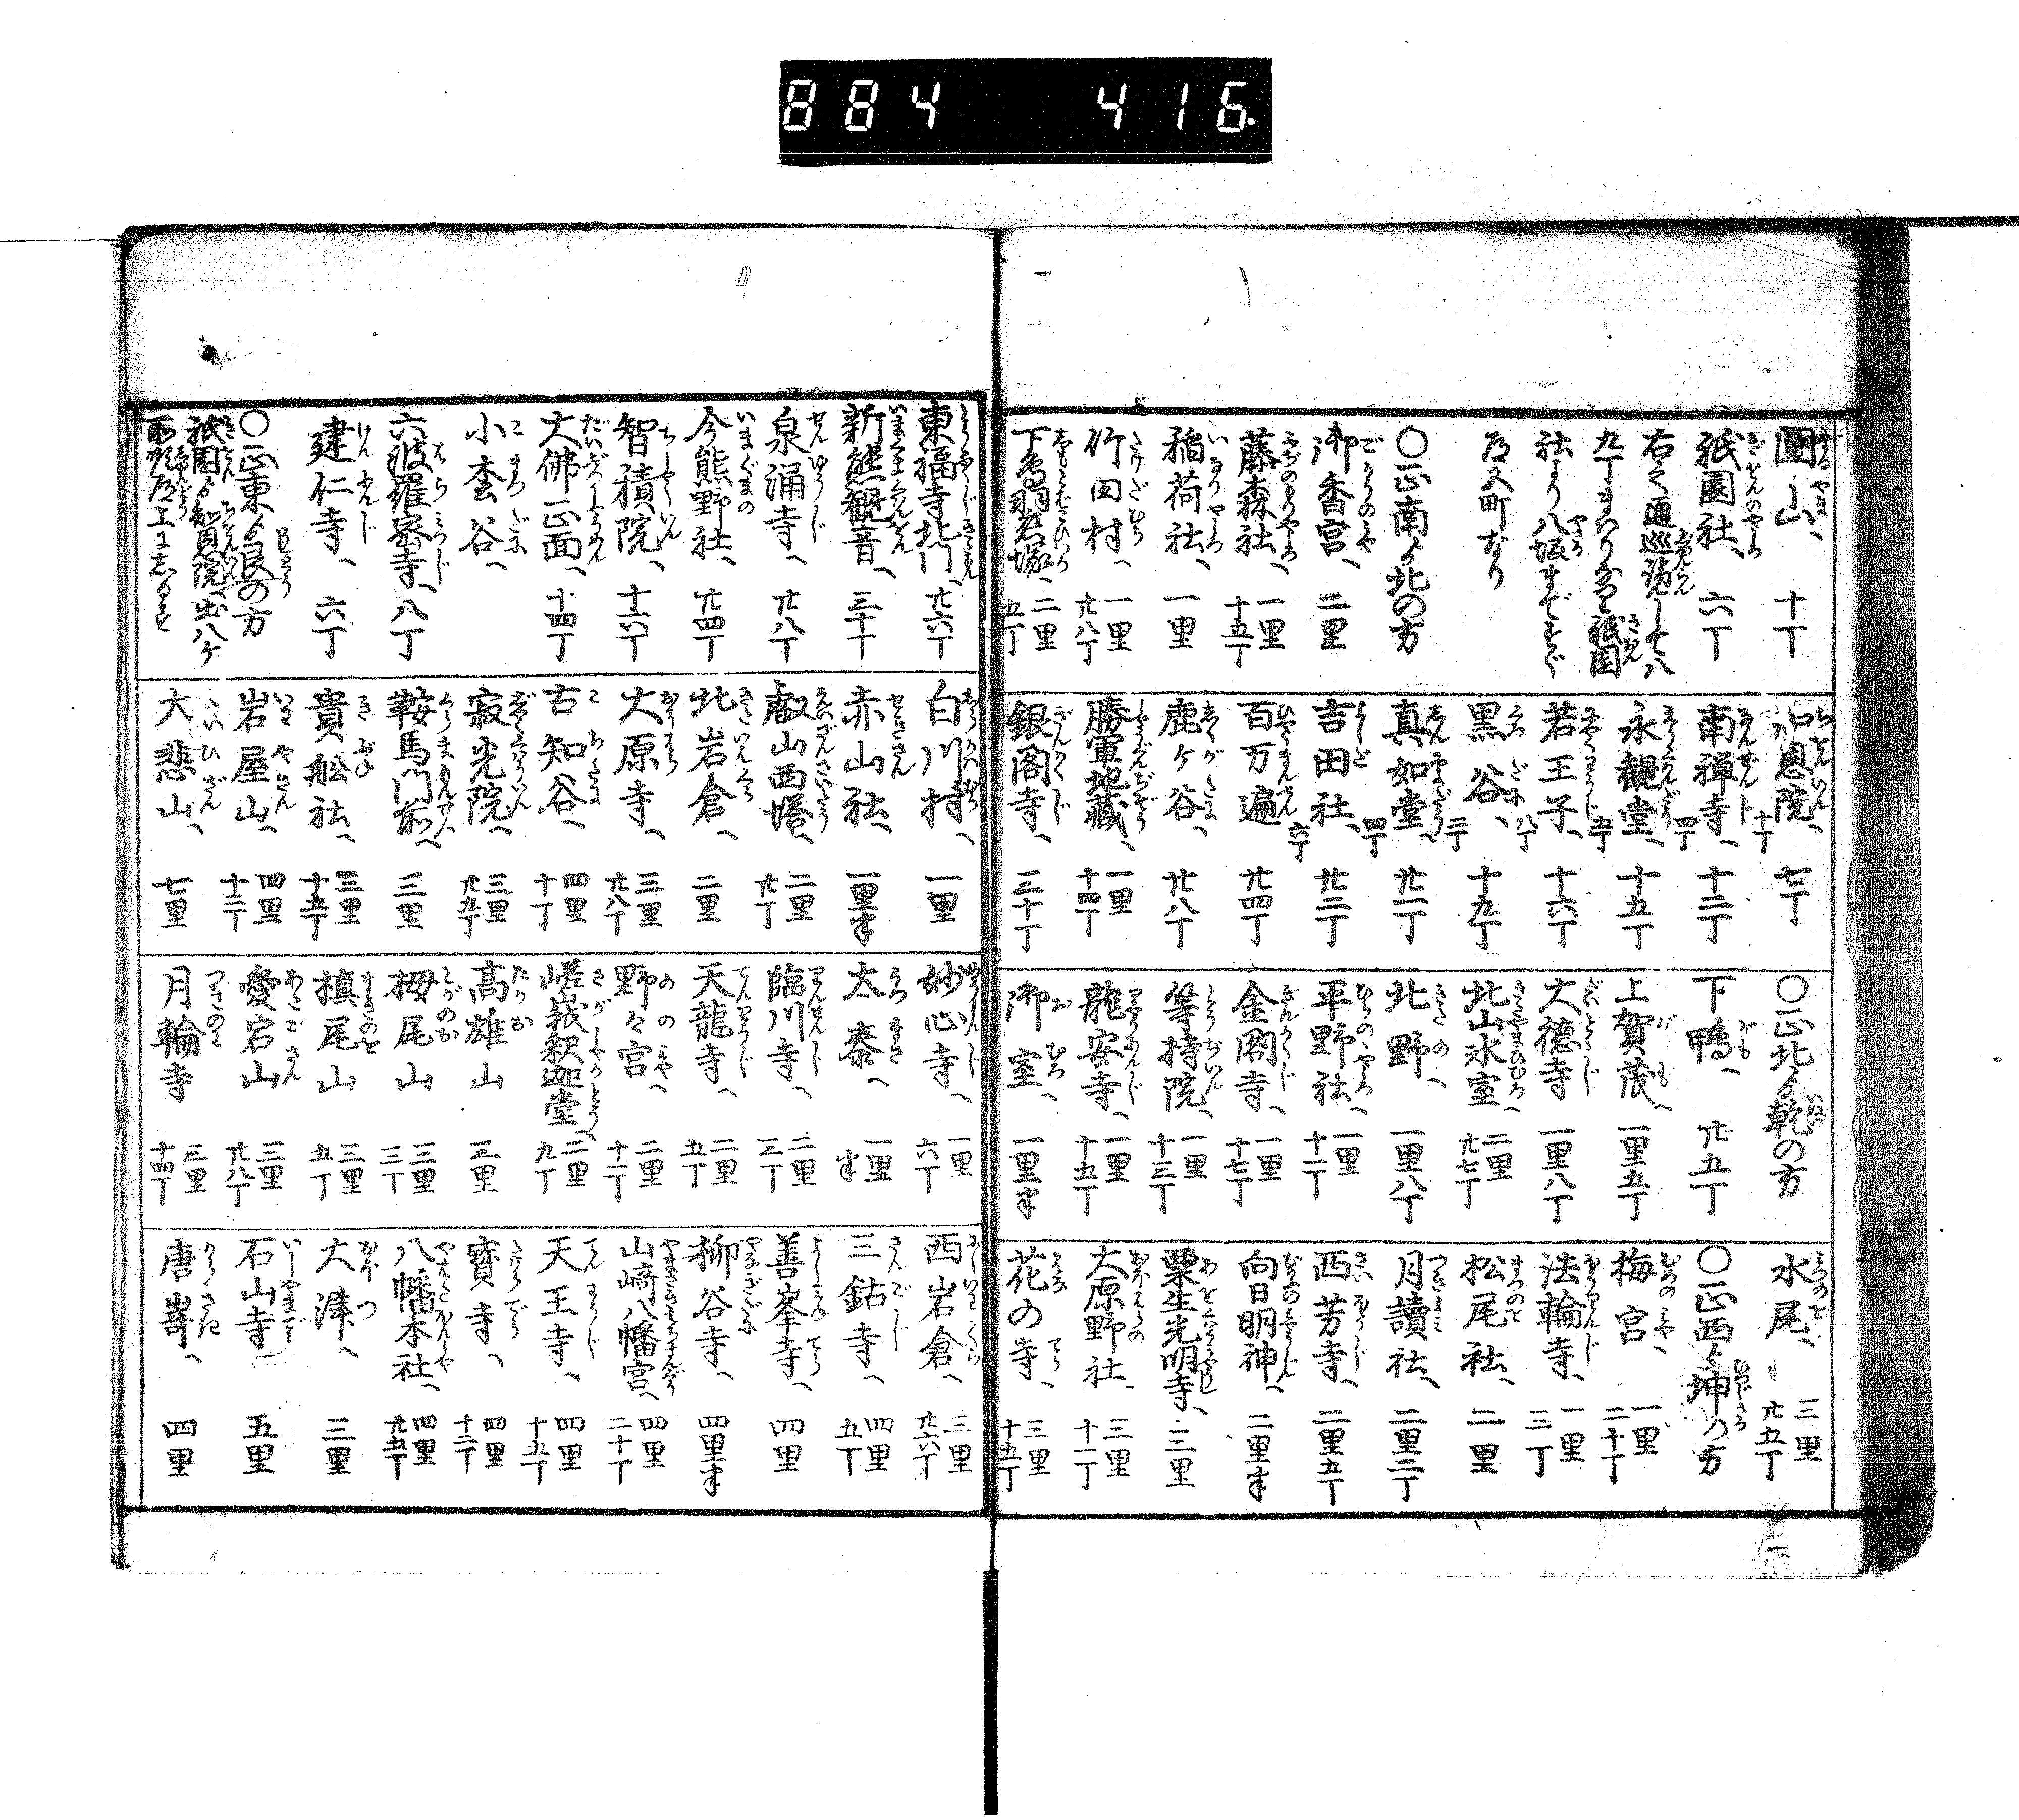 884 416.
圓山、 十丁
祇園社、 六丁
右之通巡覧して八
九丁まはりなり祇園
社より八坂まですぐ
道又町なり
〇正南より北の方
御香宮、 二里
藤森社、 一里十五丁
稲荷社、 一里
竹田村、 一里廿八丁
下鳥羽恋塚、 二里五丁
知恩院、 七丁
南禅寺、 十丁 十二丁
永観堂、 四丁 十五丁
若王子、 五丁 十六丁
黒谷、 八丁 十九丁
真如堂、 二丁 廿一丁
吉田社、 四丁 廿三丁
百万遍 六丁 廿四丁
鹿ヶ谷、 廿八丁
勝軍地蔵、 一里十四丁
銀閣寺、 三十丁
〇正北より乾の方
下鴨、 廿五丁
上賀茂、 一里五丁
大徳寺 一里八丁
北山氷室、 二里廿七丁
北野、 一里八丁
平野社、 一里十一丁
金閣寺、 一里十七丁
等持院、 一里十三丁
龍安寺、 一里十五丁
御室、 一里半
水尾、 三里廿五丁
〇正西より坤の方
梅宮、 一里二十丁
法輪寺、 一里三丁
松尾社、 二里
月讀社、 二里二丁
西芳寺、 二里五丁
向日明神、 二里半
粟生光明寺、 三里
大原野社、 三里十一丁
花の寺、 三里十五丁
東福寺北門、 廿六丁
新熊観音、 三十丁
泉涌寺、 廿八丁
今熊野社、 廿四丁
智積院、 十六丁
大佛正面、 十四丁
小松谷、
六波羅蜜寺、 八丁
建仁寺、 六丁
〇正東より艮の方
祇園より知恩院へ出八ヶ
所順道上にしるす
白川村、 一里
赤山社、 一里半
叡山西塔、 二里廿丁
北岩倉、 二里
大原寺、 三里廿八丁
古知谷、 四里十丁
寂光院、 三里廿九丁
鞍馬門前、 三里
貴舩社、 三里十五丁
岩屋山、 四里十二丁
大悲山、 七里
妙心寺、 一里六丁
太秦、 一里半
臨川寺、 二里三丁
天龍寺、 二里五丁
野々宮、 二里十一丁
嵯峨釈迦堂、 二里九丁
高雄山 三里
栂尾山 三里三丁
槙尾山 三里五丁
愛宕山 三里廿八丁
月輪寺 三里十四丁
西岩倉、 三里廿六丁
三鈷寺、 四里五丁
善峯寺、 四里
柳谷寺、 四里半
山崎八幡宮、 四里二十丁
天王寺、 四里十五丁
寳寺、 四里十二丁
八幡本社、 四里廿五丁
大津、 三里
石山寺 五里
唐嵜、 四里